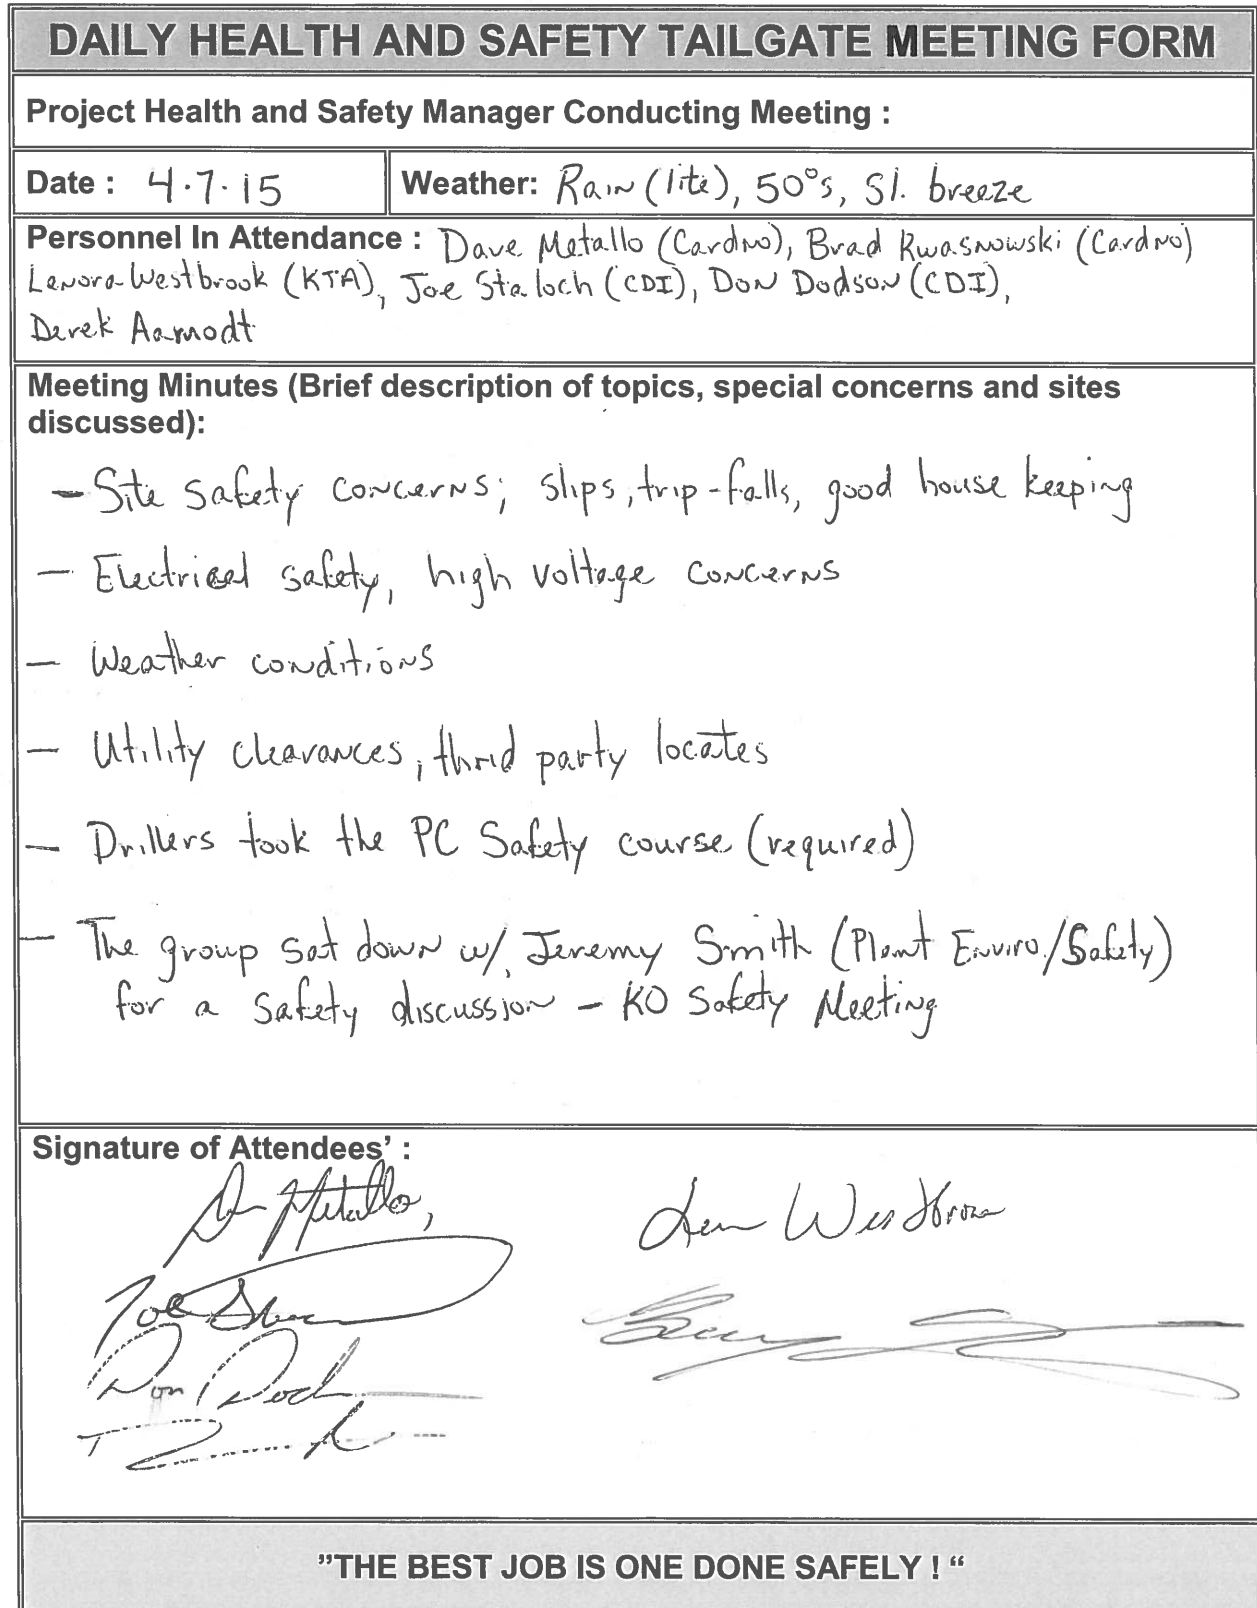 DAILY HEALTH AND SAFETY TAILGATE MEETING FORM
Project Health and Safety Manager Conducting Meeting :
Date : 4.7.15 Weather: Rain (lite), 50°s, Sl. breeze
Personnel In Attendance : Dave Metallo (Cardno), Brad Kwasnowski (Cardno)
Lenora Westbrook (KTA), Joe Staloch (CDI), Don Dodson (CDI),
Derek Aamodt
Meeting Minutes (Brief description of topics, special concerns and sites
discussed):
- Site safety concerns; slips, trip-falls, good house keeping
- Electrical safety, high voltage concerns
- Weather conditions
- Utility clearances, thrid party locates
- Drillers took the PC Safety course (required)
- The group sat down w/ Jeremy Smith (Plant Enviro/Safety)
for a safety discussion - KO Safety Meeting
Signature of Attendees' :
Metallo,
Joe
Don
"THE BEST JOB IS ONE DONE SAFELY ! "